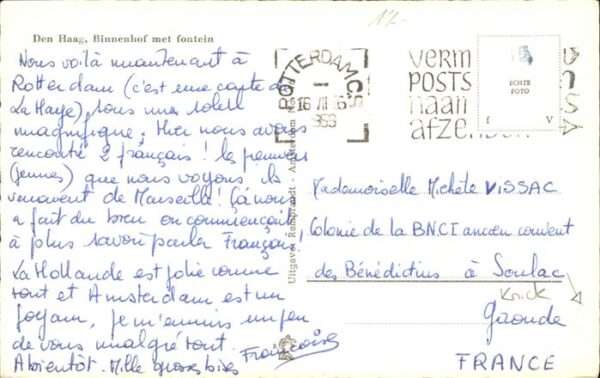 Den Haag, Binnenhof met fontein
Nous voilà maintenant à
Rotterdam (c'est une carte de
La Haye), sous un soleil
magnifique. Hier nous avons
rencontré 2 français ! les premiers
(jeunes) que nous voyons ils
venaient de Marseille ! Ça nous
a fait du bien on commençait
à plus savoir parler Français.
La Hollande est jolie comme
tout et Amsterdam est un
joyau, je m'ennuis un peu
de vous malgré tout.
A bientôt. Mille grosses bises
Françoise
Uitgave Rembrandt - Amsterdam
ROTTERDAM C.S
16 VII 16
1969
VERM
POSTS
naan
afzen
POSTE
FOTO
f V
12.-
Mademoiselle Michèle VISSAC
Colonie de la BNCI ancien couvent
des Bénédictins à Soulac
Gironde
FRANCE